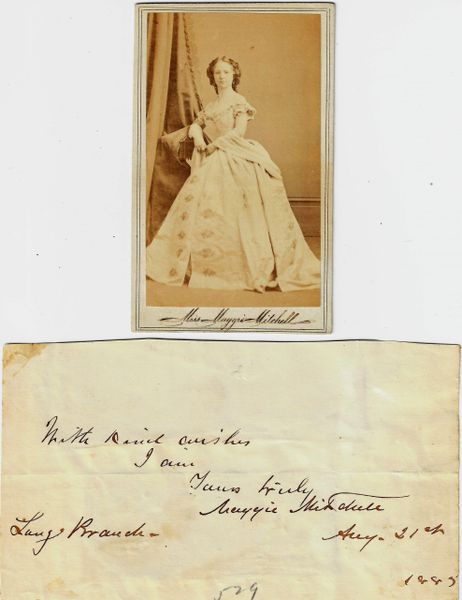 Miss Maggie Mitchell
With kind wishes
I am
Yours truly
Maggie Mitchell
Long Branch - Aug. 21st
1885
529